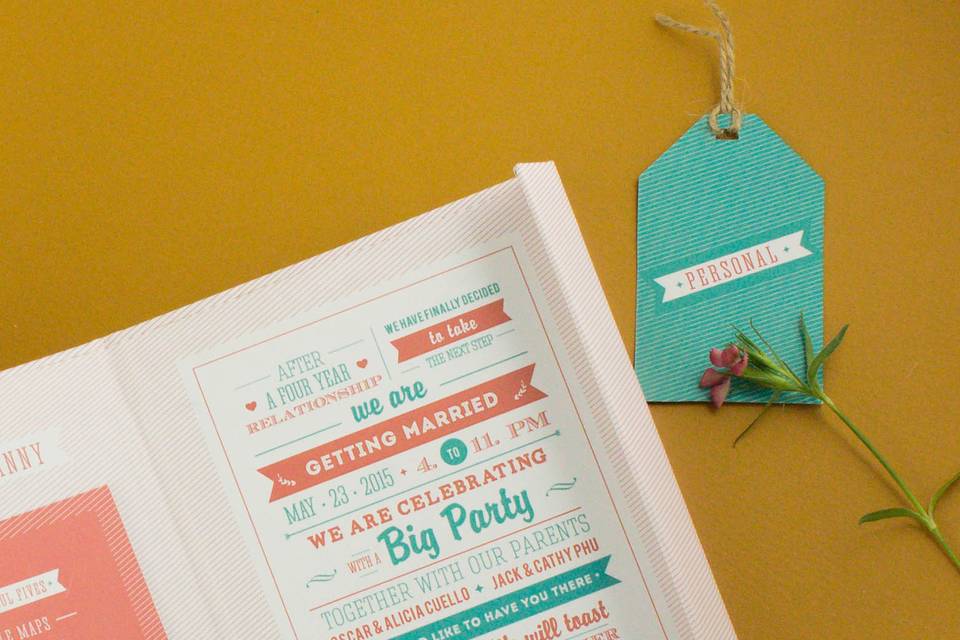 PERSONAL
WE HAVE FINALLY DECIDED
to take
THE NEXT STEP
AFTER
A FOUR YEAR
RELATIONSHIP
we are
GETTING MARRIED
MAY · 23 · 2015 + 4. TO 11. PM
WE ARE CELEBRATING
WITH A Big Party
TOGETHER WITH OUR PARENTS
OSCAR & ALICIA CUELLO + JACK & CATHY PHU
LIKE TO HAVE YOU THERE
will toast
FIVES
MAPS